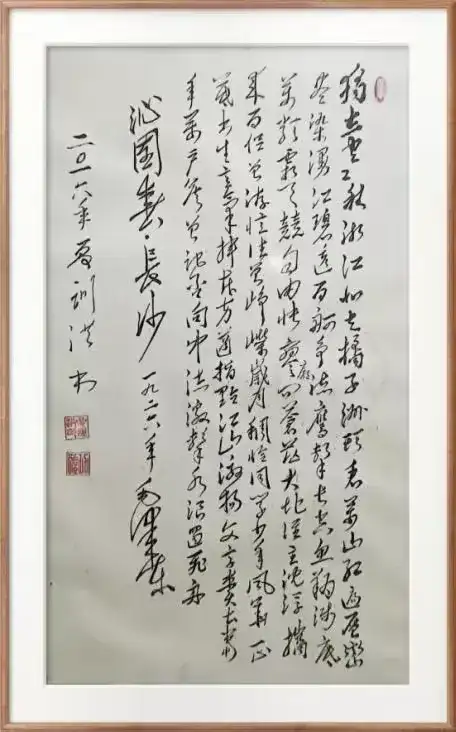 獨立寒秋湘江北去橘子洲頭看萬山紅遍層
盡染漫江碧透百舸争流鷹擊長空魚翔淺底
萬類霜天競自由悵寥廓問蒼茫大地誰主沉浮攜
來百侣曾游憶往昔崢嶸歲月稠恰同學少年風華正
茂書生意氣揮斥方遒指點江山激揚文字糞土當
年萬户侯曾記否向中流擊水浪遏飛舟
沁園春·長沙 一九二六年 毛澤東
二〇一六年夏训洪书